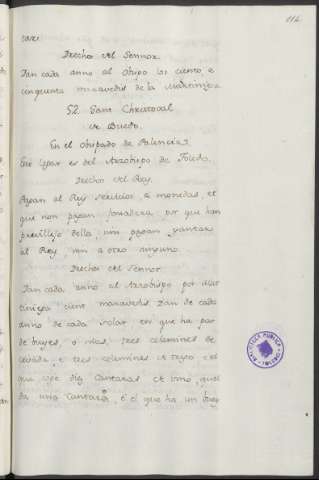 114
Derechos del Sennor
Dan cada anno al Obispo los ciento, e
cinquenta maravedis de la Martiniega
52 Sant Christoval
de Buedo.
En el Obispado de Palencia.
Este logar es del Arzobispo de Toledo.
Derechos del Rey.
Pagan al Rey servicios, e monedas, et
que non pagan fonsadera, por que han
previllejo della, nin pagan yantar
al Rey, nin a otro ninguno.
Derechos del Sennor
Dan cada anno al Arzobispo por Mar
tiniega cient maravedis. Dan de cada
anno de cada solar en que ha par
de bueyes, o mas, tres celemines de
cevada, e tres celemines de trigo e el
que coje diez Cantaras de vino, quel
da una Cantara, e el que ha un buey
BIBLIOTECA PUBLICA